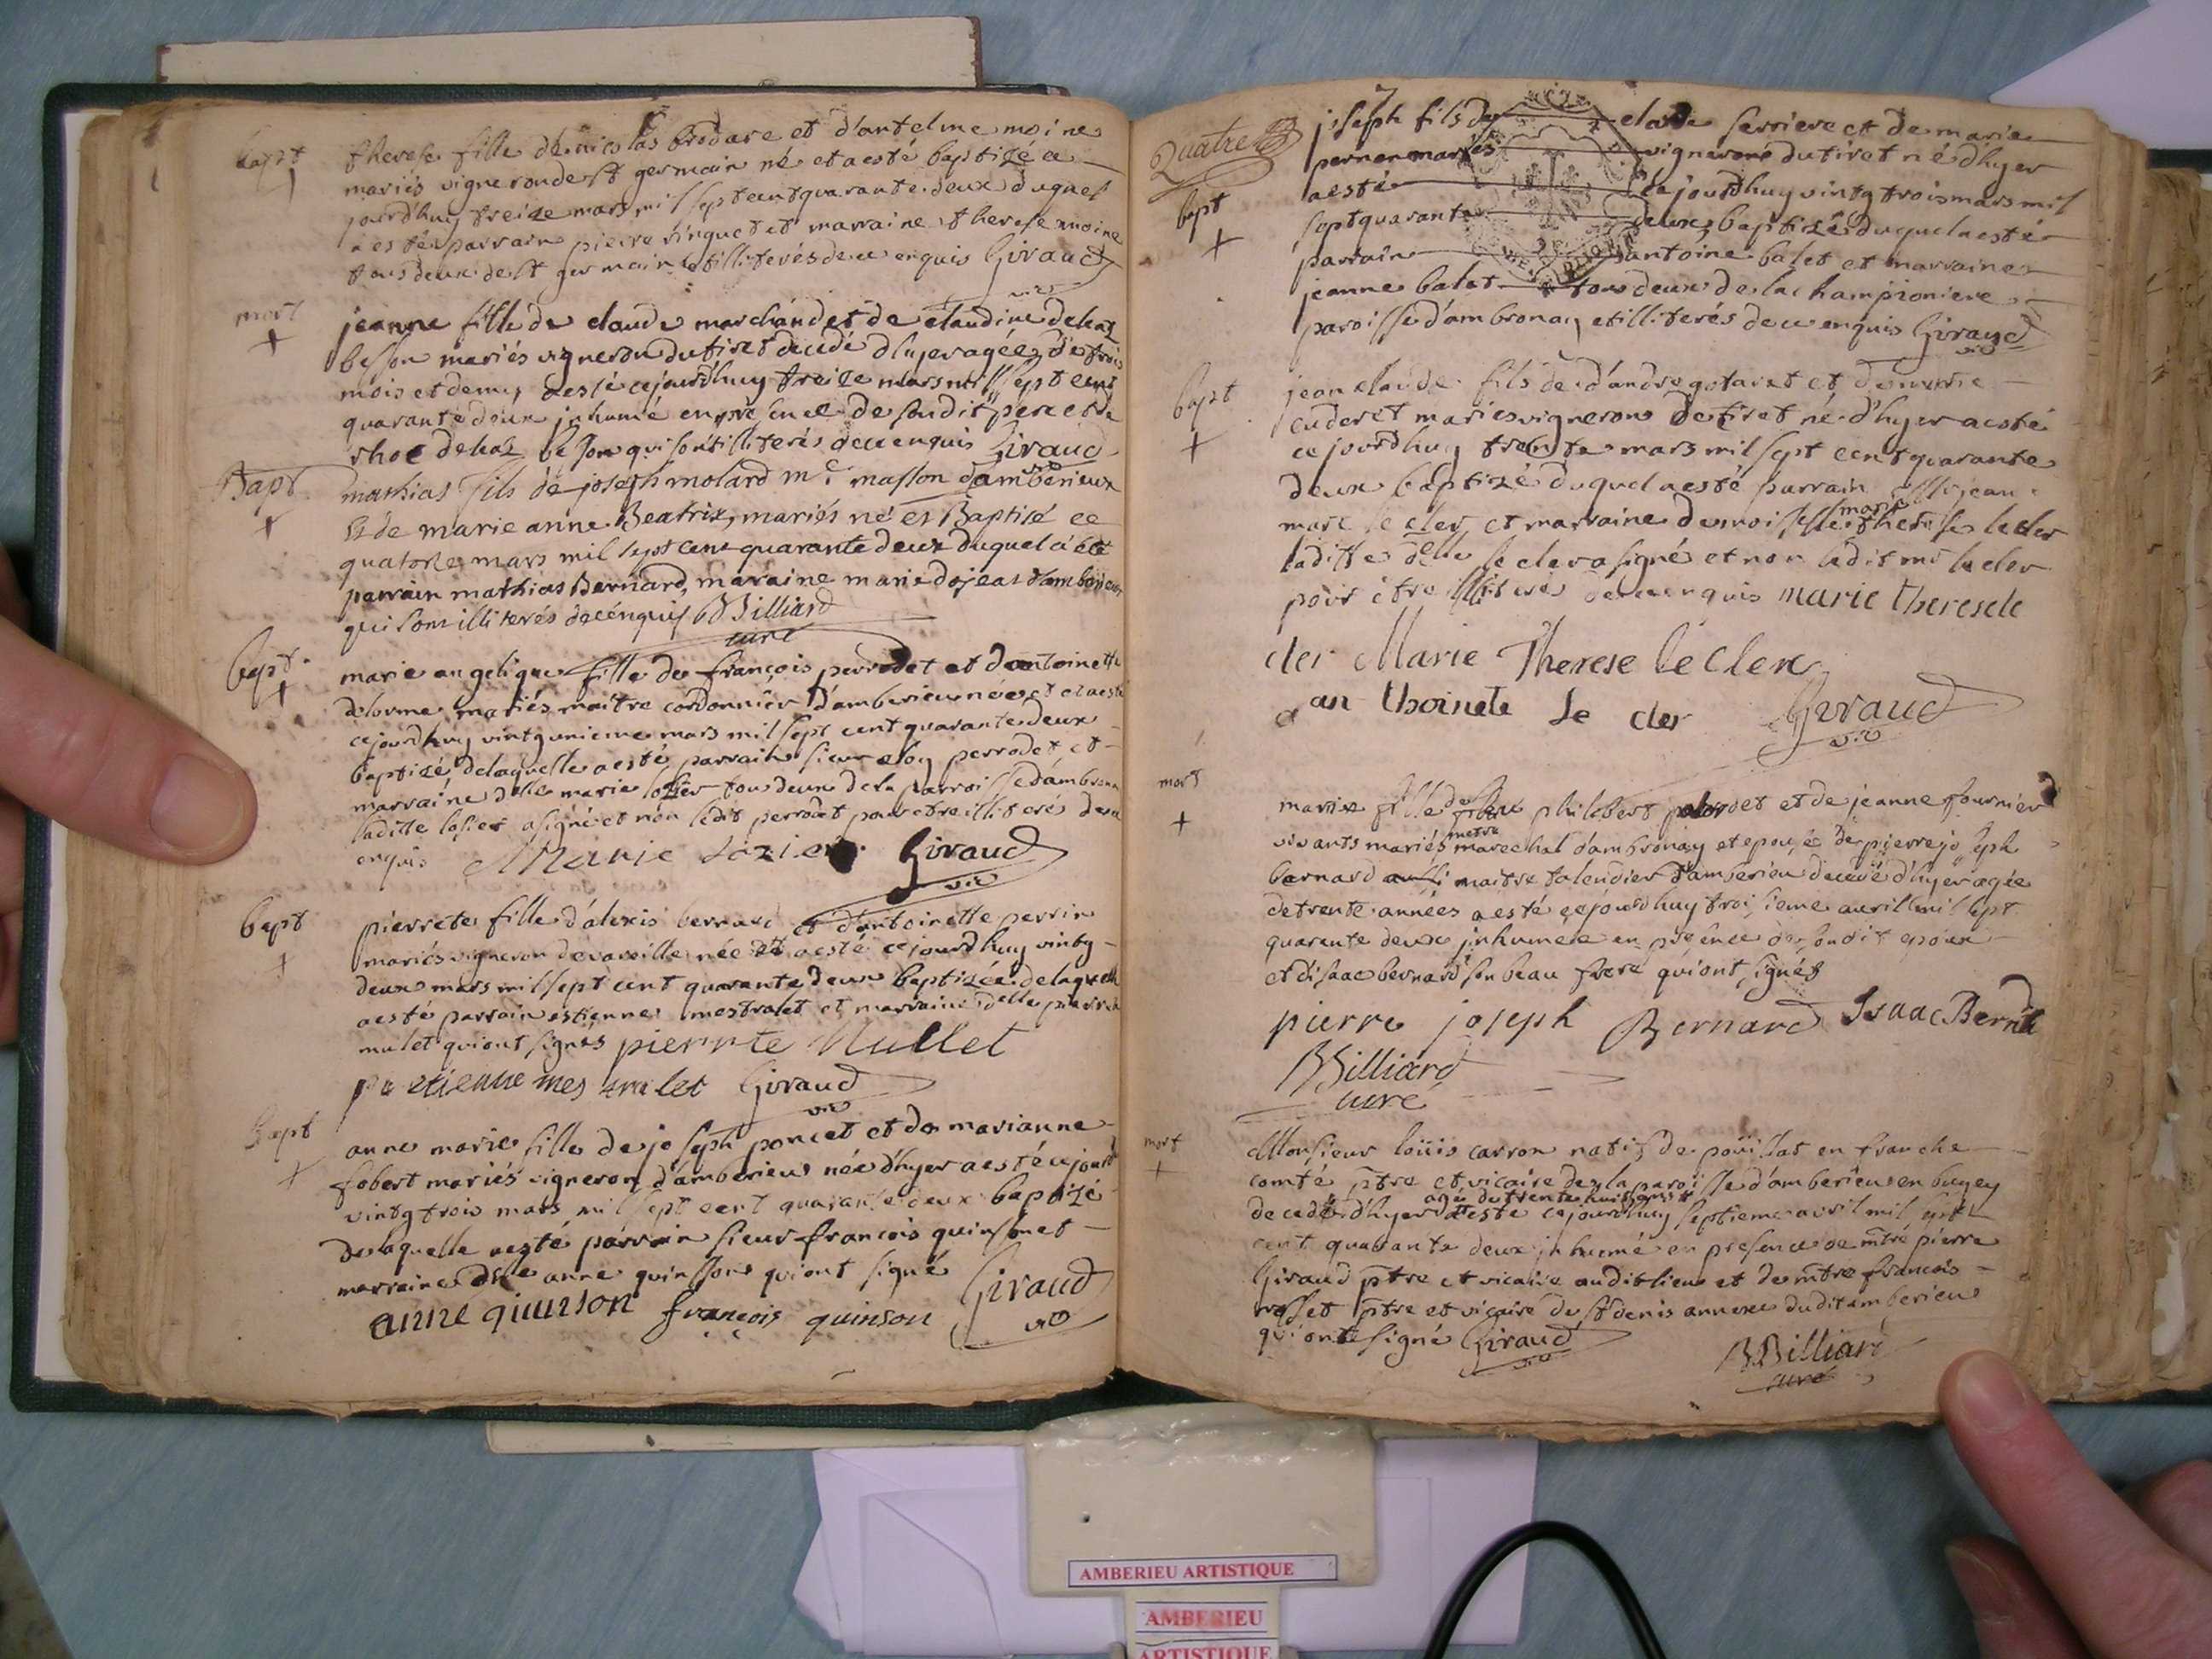 bapt
therese fille de nicolas brodare et d'antelme moine
mariés vigneron de st germain né et a esté baptizé ce
jourd'huy treize mars mil sept cent quarante deux duquel
a esté parrain pierre et marraine therese moine
tous deux de st germain et illiterés de ce enquis Giraud
vic
mort
jeanne fille de claude marchand et de claudine dehaz
besson mariés vigneron du tiret decedé d'hyer agée de trois
mois et demy a esté cejourd'huy treize mars mil sept cent
quarante deux inhumé en presence de sondit pere et de
dehaz besson qui sont illiterés de ce enquis Giraud
vic
Bapt
mathias fils de joseph molard me masson d'amberieux
et de marie anne Beatrix, mariés né et Baptisé ce
quatorze mars mil sept cent quarante deux duquel a été
parrain mathias Bernard, maraine marie dojeat d'amberieux
qui sont illiterés de ce enquis Billiard
curé
bapt.
marie angelique fille de françois perrodet et d'antoinette
delorme mariés maitre cordonnier d'amberieu née et a esté
cejourd'huy vintg unieme mars mil sept cent quarante deux
baptizé, delaquelle a esté parrain sieur eloy perrodet et
marraine delle marie losier tou deux de la parroisse d'ambronay
laditte losier a signé et non ledit perrodet pour etre illiteré de ce
enquis Marie Lozier Giraud
vic
bapt
pierrete fille d'alexis bernard et d'antoinette perrin
mariés vigneron de vareille née et a esté cejourd'huy vintg
deux mars mil sept cent quarante deux baptizée delaquelle
a esté parrain estienne mestralet et marraine delle pierrete
mulet qui ont signés pierrte Mullet
etienne mestralet Giraud
vic
Bapt
anne marie fille de joseph poncet et de marianne
fobert mariés vigneron d'amberieu née d'hyer a esté cejourd
vintg trois mars mil sept cent quarante deux baptizé
delaquelle a esté parrain sieur francois quinson et
marraine dlle anne quinson qui ont signé Giraud
anne quinson françois quinson vic
Quatre
joseph fils de claude serriere et de marie
pernon mariés vigneron du tiret né d'hyer
bapt
a esté cejourd'huy vintg trois mars mil
sept quarante deux baptizé duquel a esté
parrain antoine balet et marraine
jeanne balet tou deux de la championiere
paroisse d'ambronay et illiterés de ce enquis Giraud
vic
bapt
jean claude fils de d'andre gotaret et de marie
cuderet mariés vigneron de tiret né d'hyer a esté
cejourd'huy trente mars mil sept cent quarante
deux baptizé duquel a esté parrain jean
marie
marc le cler et marraine demoiselle therese le cler
laditte delle le cler a signé et non ledit le cler
pour être illiteré de ce enquis marie therese le
cler Marie Therese le Clerc
an thoinete le cler Giraud
vic
mort
marie fille de feu philibert et de jeanne fournier
metre
vivants mariés marechal d'ambronay et epouse de pierre joseph
barnard maitre taleudier d'amberieu decedé d'hyer agée
de trente années a esté cejourd'huy troisieme avril mil sept
quarante deux inhumée en presence de sondit epoux
et d'isaac bernard son beau frere qui ont signés
pierre joseph Bernard Isaac Bernard
Billiard
curé
mort
Monsieur loüis carron natif de poüillat en franche
comté ptre et vicaire de la paroisse d'amberieu en bugey
agé de trente huit ans
decedé d'hyer a esté cejourd'huy septieme avril mil sept
cent quarante deux inhumé en presence de mtre pierre
Giraud ptre et vicaire audit lieu et de mtre francois
rosset ptre et vicaire de st denis annexe dudit amberieu
qui ont signé Giraud Billiard
vic curé
AMBERIEU ARTISTIQUE
AMBERIEU
ARTISTIQUE